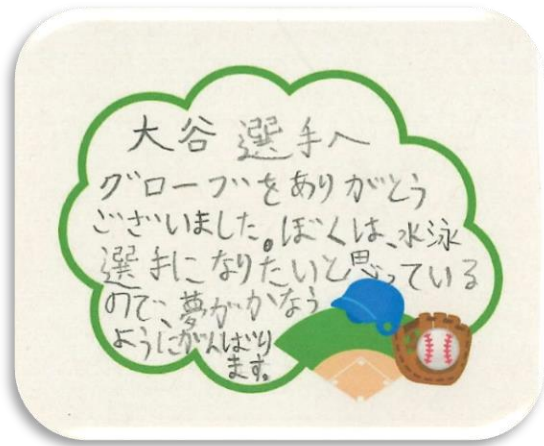 大谷選手へ
グローブをありがとう
ございました。ぼくは、水泳
選手になりたいと思っている
ので、夢がかなう
ようにがんばり
ます。